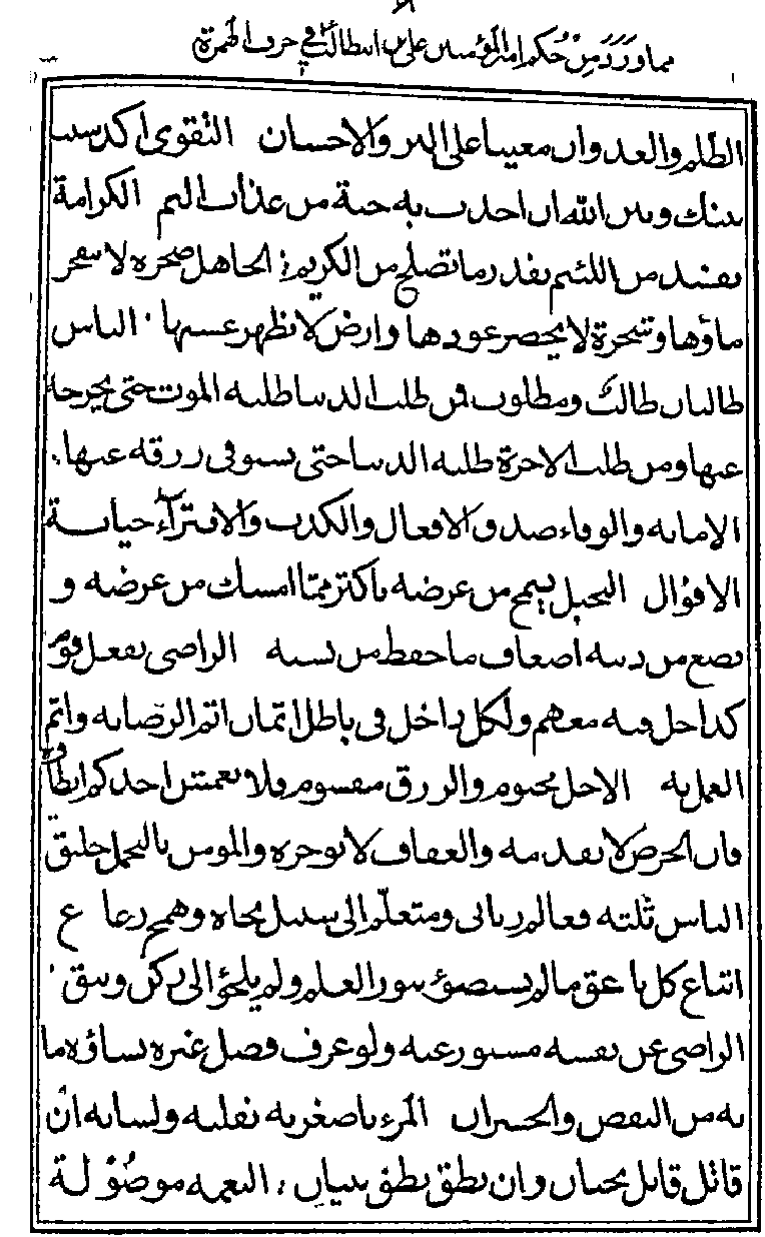 مما ورد من حكم امير المؤمنين علي بن ابيطالب في حرف الهمزة
الظلم والعدوان معينا على البر والاحسان التقوى اكد سبب
بينك وبين الله ان اخذت به جنة من عذاب اليم الكرامة
تفسد من اللئيم بقدر ما تصلح من الكريم الجاهل صخرة لا ينفجر
ماؤها وشجرة لا يخضر عودها وارض لا يظهر عشبها الناس
طالبان طالب ومطلوب فمن طلب الدنيا طلبه الموت حتى يخرجه
عنها ومن طلب الاخرة طلبه الدنيا حتى يستوفى رزقه عنها
الامانه والوفاء صدق الافعال والكذب والافتراء خيانة
الاقوال البخيل يسمح من عرضه باكثر مما امسك من عرضه و
يضيع من دينه اضعاف ما حفظ من نسبه الراضى بفعل قوم
كداخل فيه معهم ولكل داخل فى باطل اثمان اثم الرضا به واثم
العمل به الاجل محتوم والرزق مقسوم فلا يغمنن احدكم ابطاؤه
فان الحرص لا يقدمه والعفاف لا يؤخره والمومن بالتحمل خليق
الناس ثلثه فعالم ربانى ومتعلم الى سبيل نجاه وهمج رعا ع
اتباع كل ناعق ما لم يستضؤ بنور العلم ولم يلجؤ الى ركن وثيق
الراضى عن نفسه مستور عنه ولو عرف فضل غيره نساؤه ما
به من النقص والخسران المرء باصغريه بقلبه ولسانه ان
قاتل قاتل بجنان وان نطق نطق ببيان النعمه موصولة